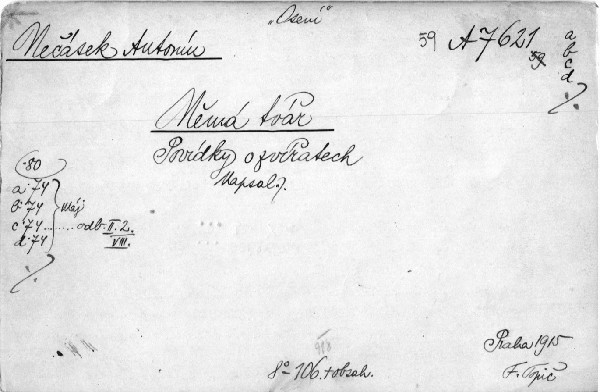 „Osení"
Nečásek Antonín
59 A 7621
59
a
b
c
d
Němá tvář
Povídky o zvířatech
Napsal .
80
a 74
b 74 Máj
c 74 ...... odb. II. 2.
d 74 VIII.
8° - 106. + obsah.
Praha 1915
F. Topič